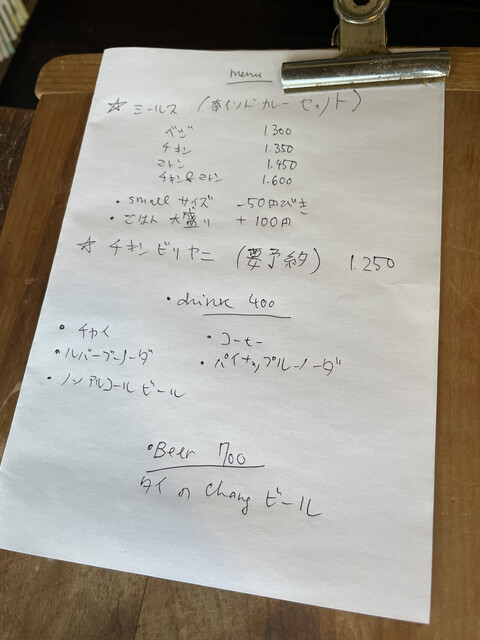 menu
☆ ミールス (南インドカレーセット)
ベジ 1.300
チキン 1.350
マトン 1.450
チキン&マトン 1.600
・small サイズ -50円びき
・ごはん 大盛り +100円
☆ チキンビリヤニ (要予約) 1.250
・drink 400
・チャイ ・コーヒー
・ルバーブソーダ ・パイナップルソーダ
・ノンアルコールビール
・Beer 700
タイの Chang ビール